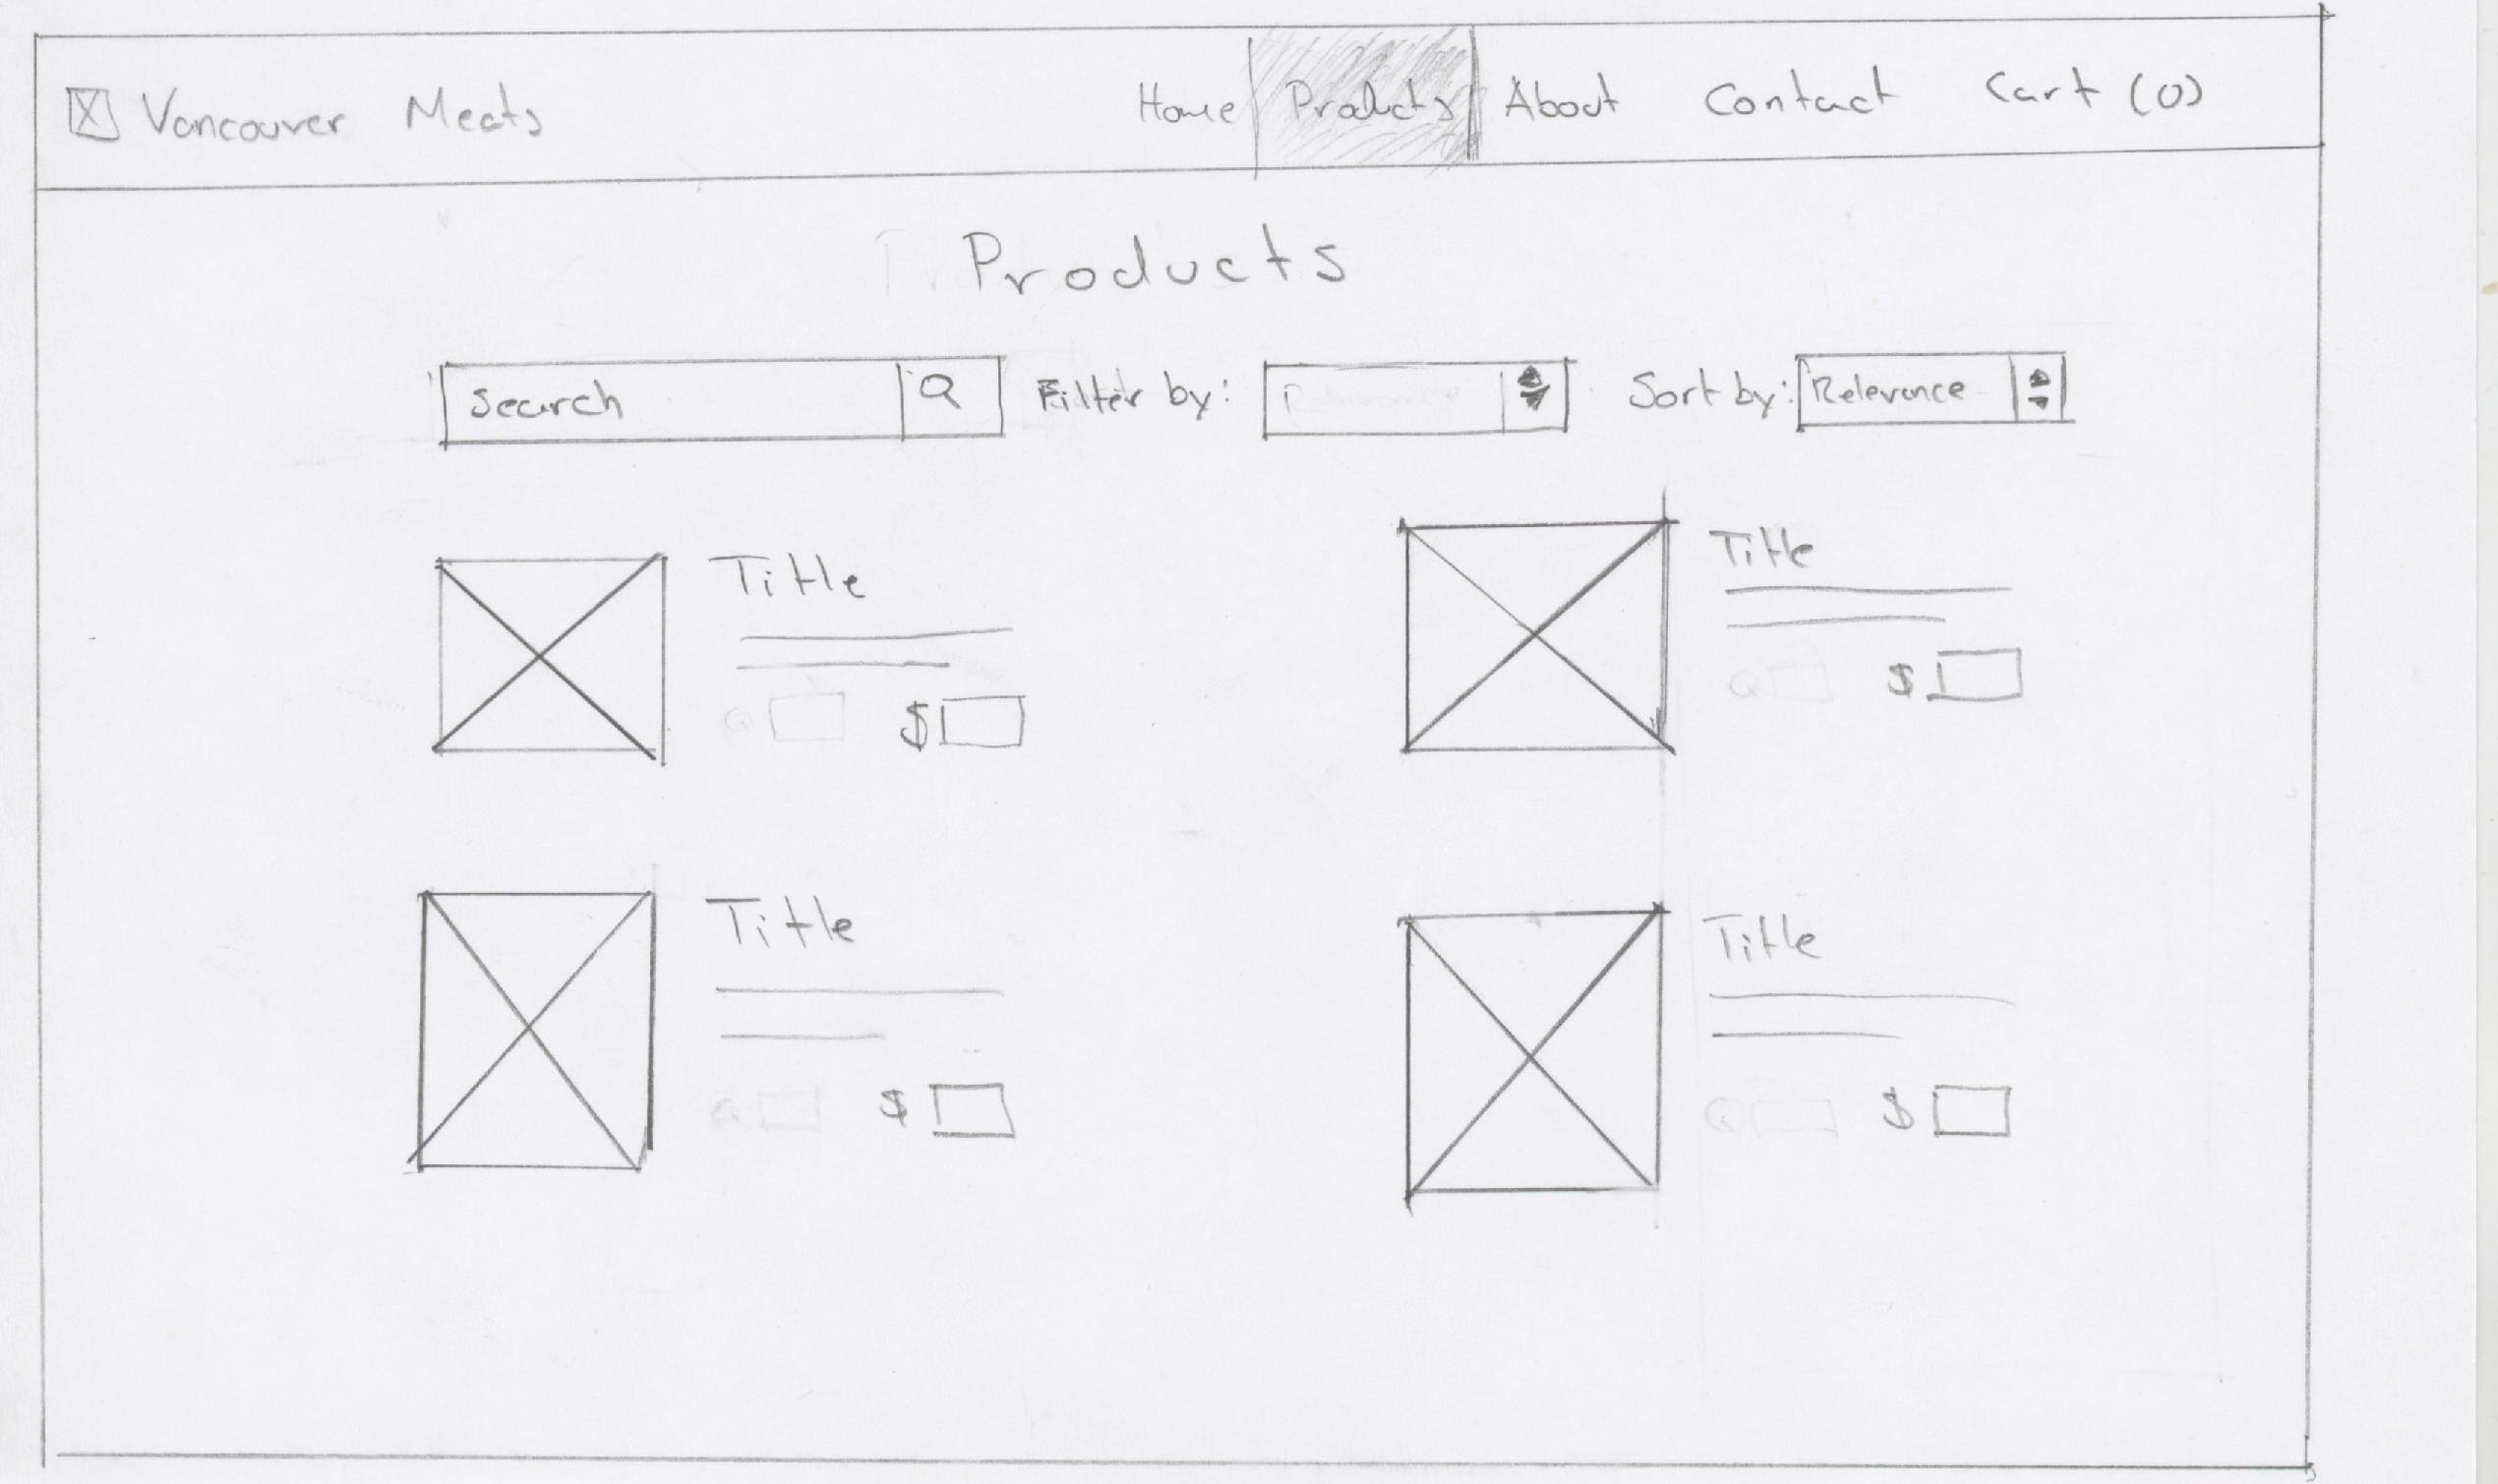 Vancouver Meats Home Products About Contact Cart (0)
Products
Search Filter by: Relevance Sort by: Relevance
Title Title
Q $ Q $
Title Title
Q $ Q $